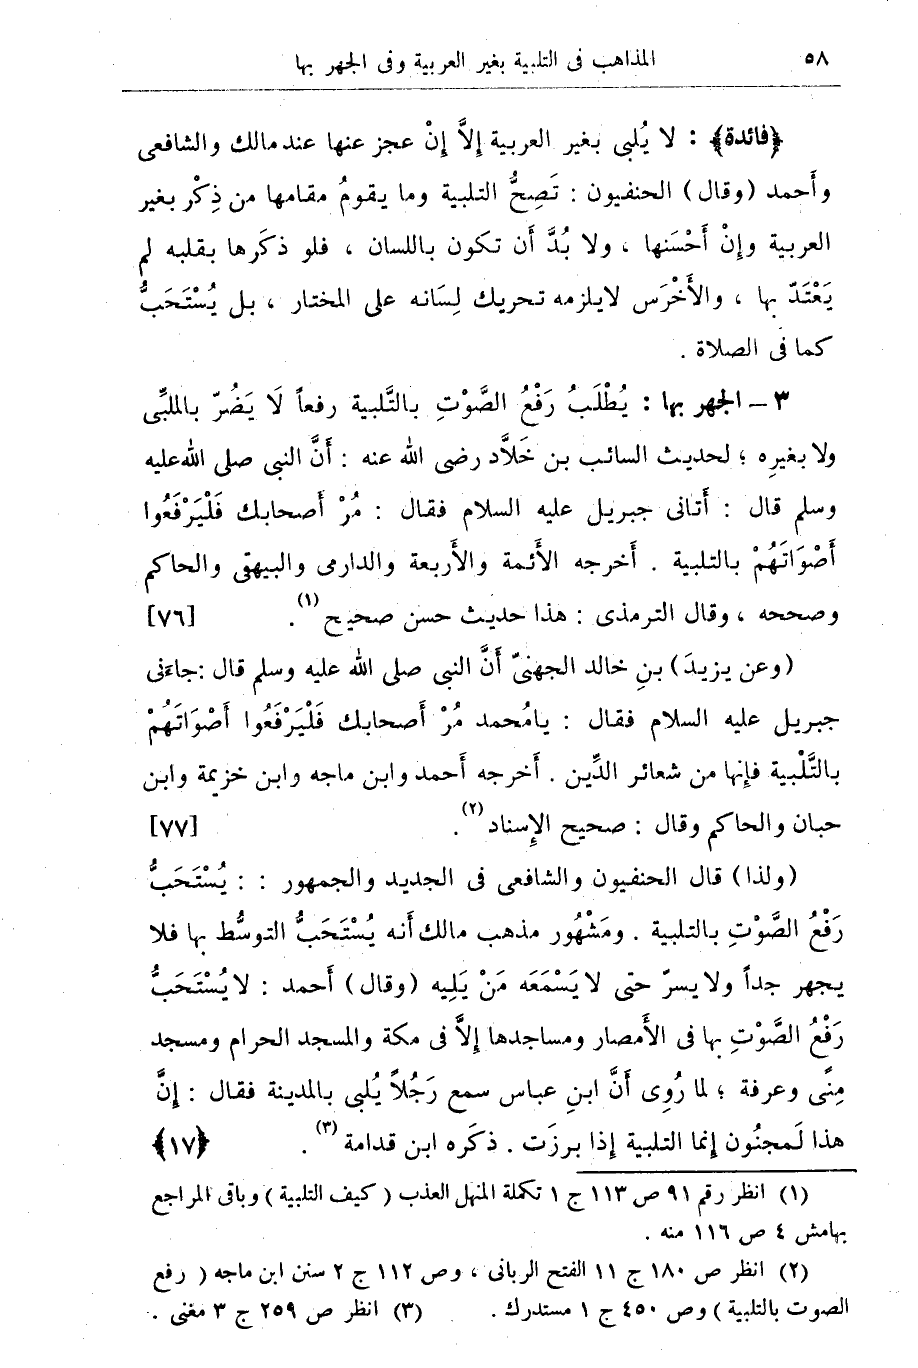 ٥٨ المذاهب فى التلبية بغير العربية وفى الجهر بها
﴿فائدة﴾ : لا يُلبى بغير العربية إلاَّ إنْ عجز عنها عند مالك والشافعى
وأحمد (وقال) الحنفيون : تَصِحُّ التلبية وما يقومُ مقامها من ذِكْر بغير
العربية وإنْ أَحْسَنها ، ولا بُدَّ أن تكون باللسان ، فلو ذكَرها بقلبه لم
يَعْتَدّ بها ، والأَخْرَس لايلزمه تحريك لِسَانه على المختار ، بل يُسْتَحَبُّ
كما فى الصلاة .
٣ – الجهر بها : يُطْلَبُ رَفْعُ الصَّوْتِ بالتَّلبية رفعاً لَا يَضُرّ بالملبِّى
ولا بغيرِه ؛ لحديث السائب بن خَلاَّد رضى الله عنه : أنَّ النبى صلى الله عليه
وسلم قال : أتانى جبريل عليه السلام فقال : مُرْ أصحابك فَلْيَرْفَعُوا
أَصْوَاتَهُمْ بالتلبية . أخرجه الأَئمة والأَربعة والدارمى والبيهقى والحاكم
وصححه ، وقال الترمذى : هذا حديث حسن صحيح (١). [٧٦]
(وعن يزيدَ) بنِ خالد الجهنىّ أنَّ النبى صلى الله عليه وسلم قال : جاءنى
جبريل عليه السلام فقال : يا مُحمد مُرْ أصحابك فَلْيَرْفَعُوا أصْوَاتَهُمْ
بالتَّلْبية فإنها من شعائر الدِّين . أخرجه أحمد وابن ماجه وابن خزيمة وابن
حبان والحاكم وقال : صحيح الإسناد (٢). [٧٧]
(ولذا) قال الحنفيون والشافعى فى الجديد والجمهور : : يُسْتَحَبُّ
رَفْعُ الصَّوْتِ بالتلبية . ومَشْهُور مذهب مالك أنه يُسْتَحَبُّ التوسُّط بها فلا
يجهر جداً ولا يسرّ حتى لا يَسْمَعَه مَنْ يَلِيه (وقال) أحمد : لا يُسْتَحَبُّ
رَفْعُ الصَّوْتِ بها فى الأَمصار ومساجدها إلاَّ فى مكة والمسجد الحرام ومسجد
مِنًى وعرفة ؛ لما رُوِى أنَّ ابنِ عباس سمع رَجُلاً يُلبى بالمدينة فقال : إنَّ
هذا لَمجنُون إنما التلبية إذا برزت . ذكَره ابن قدامة (٣). ﴿١٧﴾
(١) انظر رقم ٩١ ص ١١٣ ج ١ تكملة المنهل العذب ( كيف التلبية ) وباقى المراجع
بهامش ٤ ص ١١٦ منه .
(٢) انظر ص ١٨٠ ج ١١ الفتح الربانى ، وص ١١٢ ج ٢ سنن ابن ماجه ( رفع
الصوت بالتلبية ) وص ٤٥٠ ج ١ مستدرك . (٣) انظر ص ٢٥٩ ج ٣ مغنى .